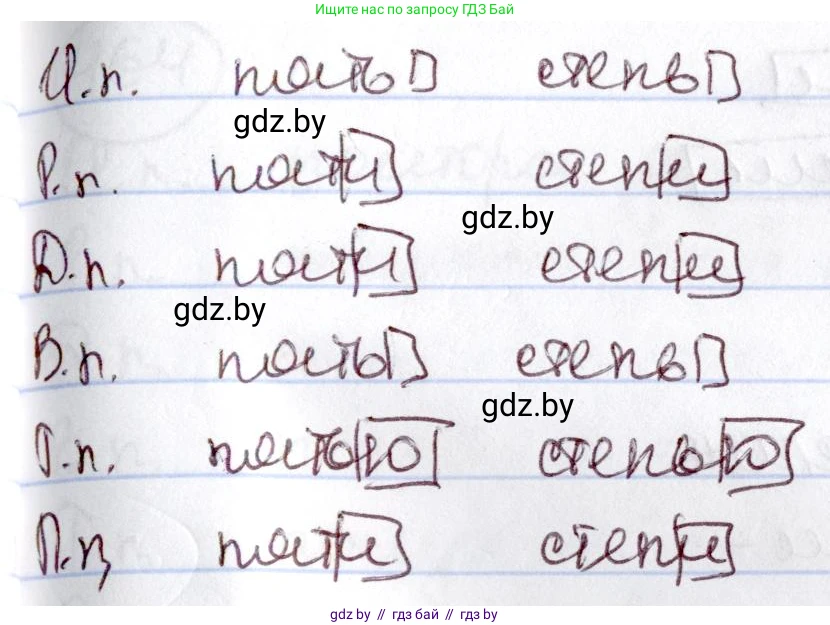 Ищите нас по запросу ГДЗ Бай
И.п. пять степь
gdz.by
Р.п. пяти степи
gdz.by
Д.п. пяти степи
gdz.by
В.п. пять степь
gdz.by
Т.п. пятью степью
П.п. пяти степи
gdz.by // гдз бай // гдз by